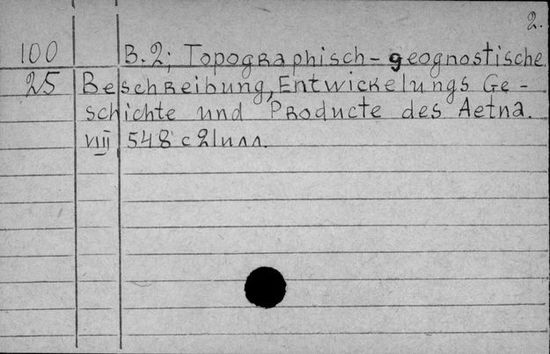 2.
100 B.2; Topographisch-geognostische
25 Beschreibung, Entwickelungs Ge-
schichte und Producte des Aetna.
VIII 548 с 21илл.